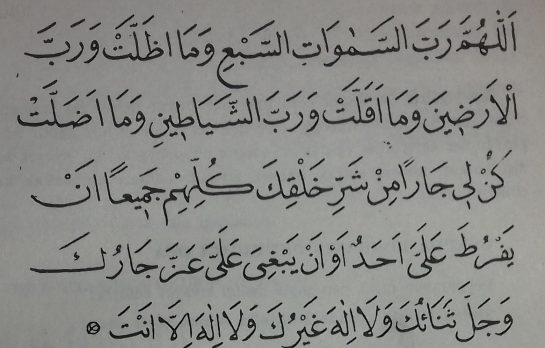 اَللّٰهُمَّ رَبَّ السَّمٰوَاتِ السَّبْعِ وَمَا اَظَلَّتْ وَرَبَّ
الْاَرَضِينَ وَمَا اَقَلَّتْ وَرَبَّ الشَّيَاطِينِ وَمَا اَضَلَّتْ
كُنْ لِي جَارًا مِنْ شَرِّ خَلْقِكَ كُلِّهِمْ جَمِيعًا اَنْ
يَفْرُطَ عَلَيَّ اَحَدٌ اَوْ اَنْ يَبْغِىَ عَلَيَّ عَزَّ جَارُكَ
وَجَلَّ ثَنَائُكَ وَلَا اِلٰهَ غَيْرُكَ وَلَا اِلٰهَ اِلَّا اَنْتَ